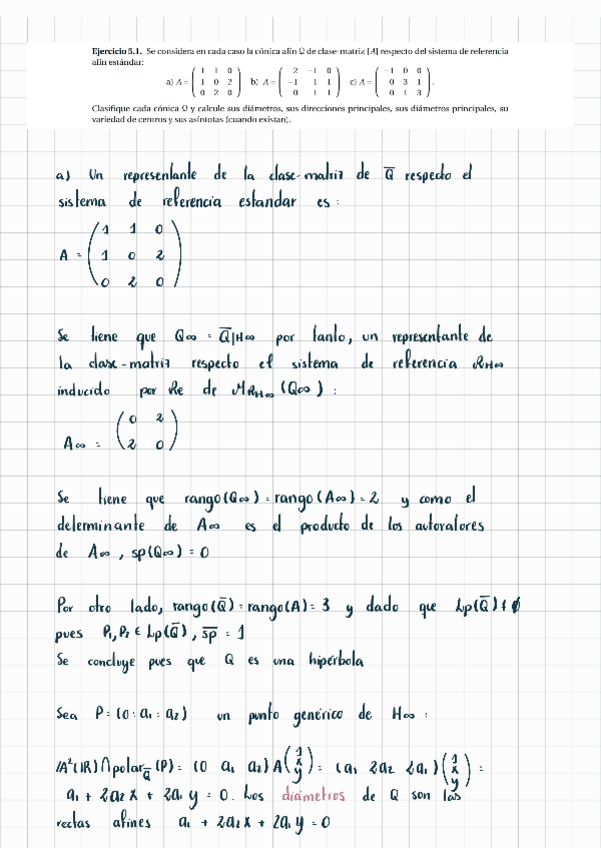 Ejercicio 5.1. Se considera en cada caso la cónica afín Q de clase-matriz [A] respecto del sistema de referencia
afín estándar:
a) A = ( 1 1 0 ; 1 0 2 ; 0 2 0 ) b) A = ( 2 -1 0 ; -1 1 1 ; 0 1 1 ) c) A = ( -1 0 0 ; 0 3 1 ; 0 1 3 ).
Clasifique cada cónica Q y calcule sus diámetros, sus direcciones principales, sus diámetros principales, su
variedad de centros y sus asíntotas (cuando existan).
a) Un representante de la clase-matriz de Q̅ respecto el
sistema de referencia estandar es:
A = ( 1 1 0 ; 1 0 2 ; 0 2 0 )
Se tiene que Q∞ = Q̅|H∞ por tanto, un representante de
la clase-matriz respecto el sistema de referencia RH∞
inducido por Re de MRH∞ (Q∞) :
A∞ = ( 0 2 ; 2 0 )
Se tiene que rango(Q∞) = rango(A∞) = 2 y como el
determinante de A∞ es el producto de los autovalores
de A∞, sp(Q∞) = 0
Por otro lado, rango(Q̅) = rango(A) = 3 y dado que Lp(Q̅) ≠ ∅
pues P₁, P₂ ∈ Lp(Q̅), s̅p̅ = 1
Se concluye pues que Q es una hipérbola
Sea P = (0 : a₁ : a₂) un punto genérico de H∞ :
A²(R) ∩ polar Q̅ (P) = (0 a₁ a₂) A (1 ; x ; y) = (a₁ 2a₂ 2a₁) (1 ; x ; y) =
a₁ + 2a₂x + 2a₁y = 0. Los diámetros de Q son las
rectas afines a₁ + 2a₂x + 2a₁y = 0